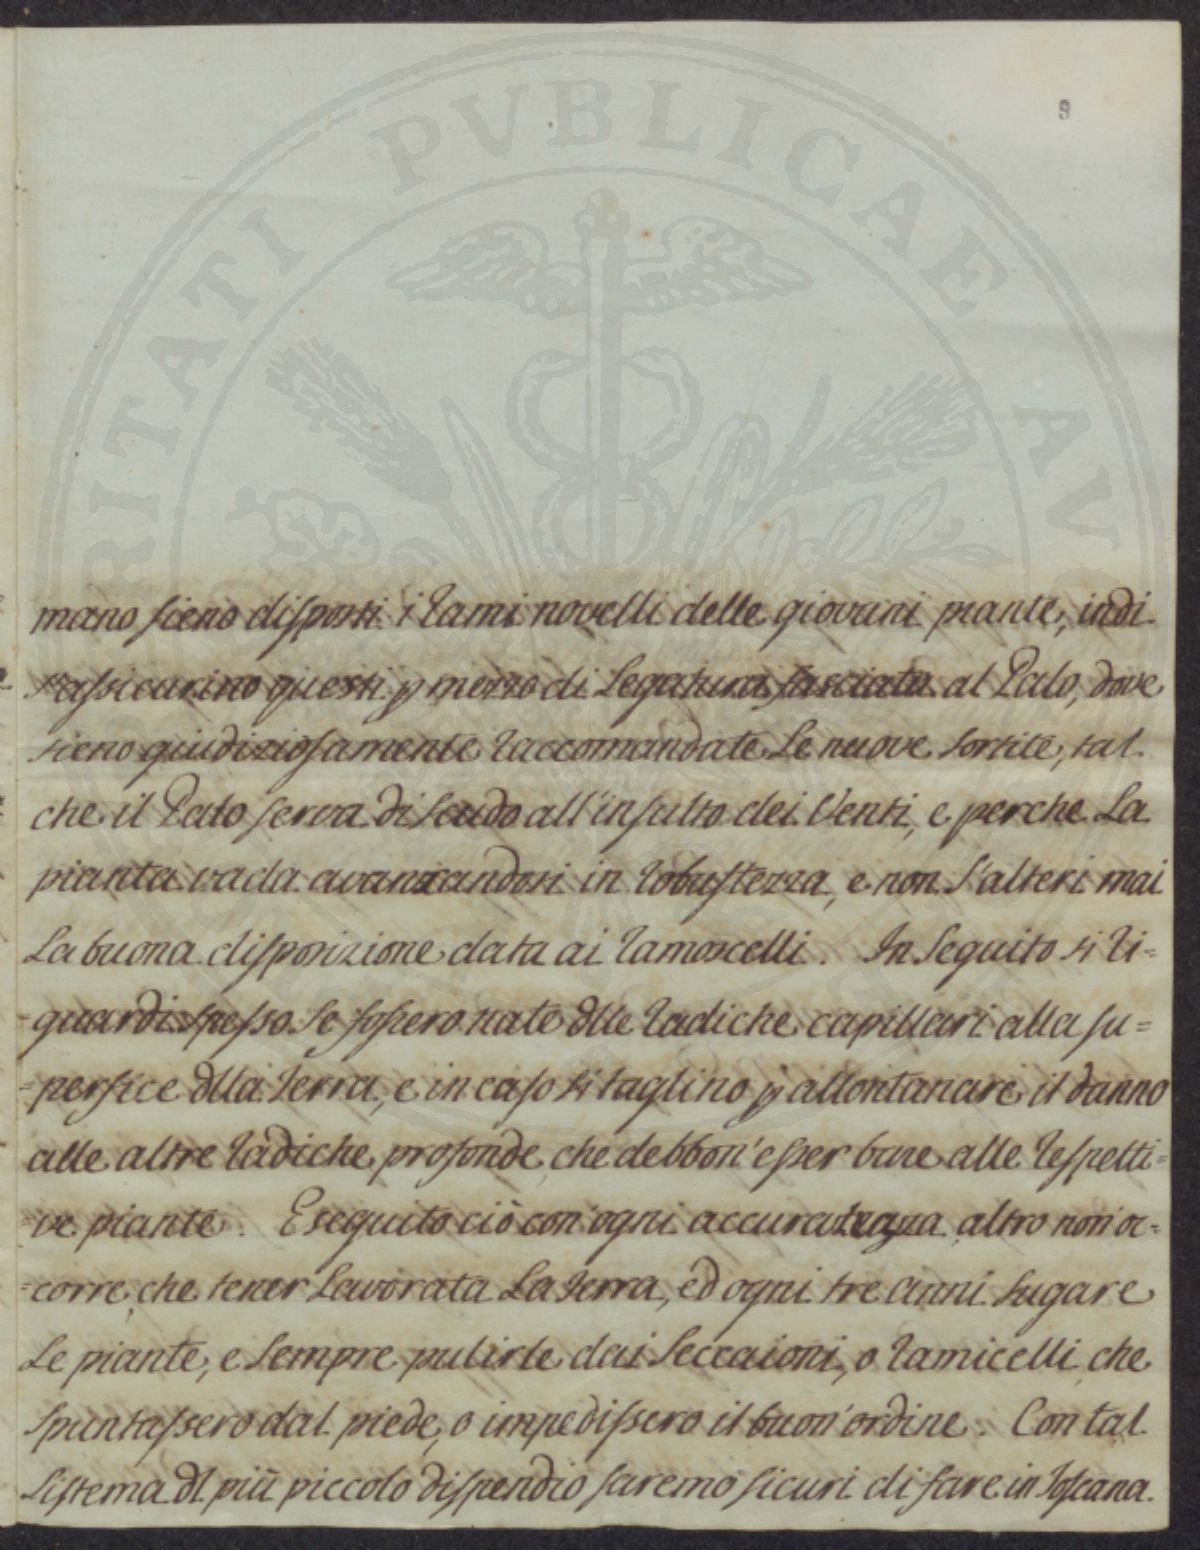 PUBLICAE
RITATI
AVC
9
mano sieno disposti i rami novelli delle giovani piante, indi
s'assicurino questi p mezzo di Legatura fasciata al Palo, dove
sieno giudiziosamente raccomandate Le nuove sortite, tal
che il Palo serva di scudo all'insulto dei Venti, e perche La
pianta vada avanzandosi in robustezza, e non s'alteri mai
La buona disposizione data ai ramoscelli. In seguito si ri=
=guardi spesso se fossero nate dlle radiche capillari alla su=
=perfice dlla Terra, e in caso si taglino p allontanare il danno
alle altre radiche profonde, che debbon'esser base alle respetti=
=ve piante. Eseguito ciò con'ogni accuratezza altro non'oc=
=corre, che tener Lavorata La terra, ed ogni tre anni sugare
Le piante, e sempre pulirle dai seccaioni, o ramicelli, che
spuntassero dal piede, o impedissero il buon'ordine. Con tal
sistema dl più piccolo dispendio saremo sicuri di fare in Toscana